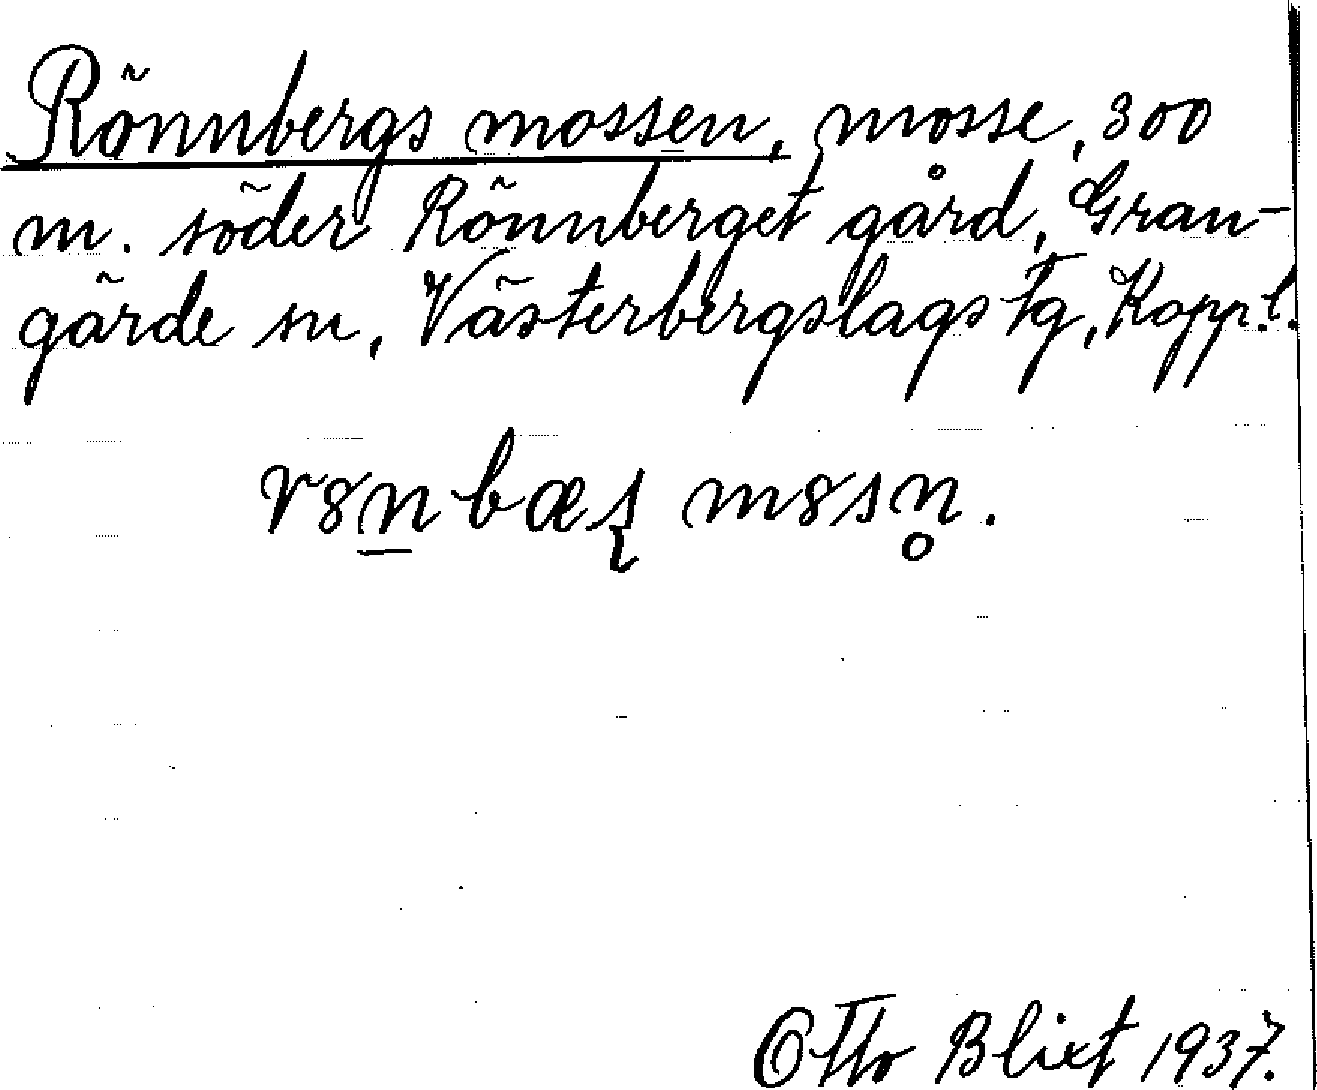 Rönnbergs mossen, mosse, 300
m. söder Rönnberget gård, Gran-
gärde sn, Västerbergslags tg, Kopp.l.
r8n̲bæʂ m8sn̥.
Otto Blixt 1937.